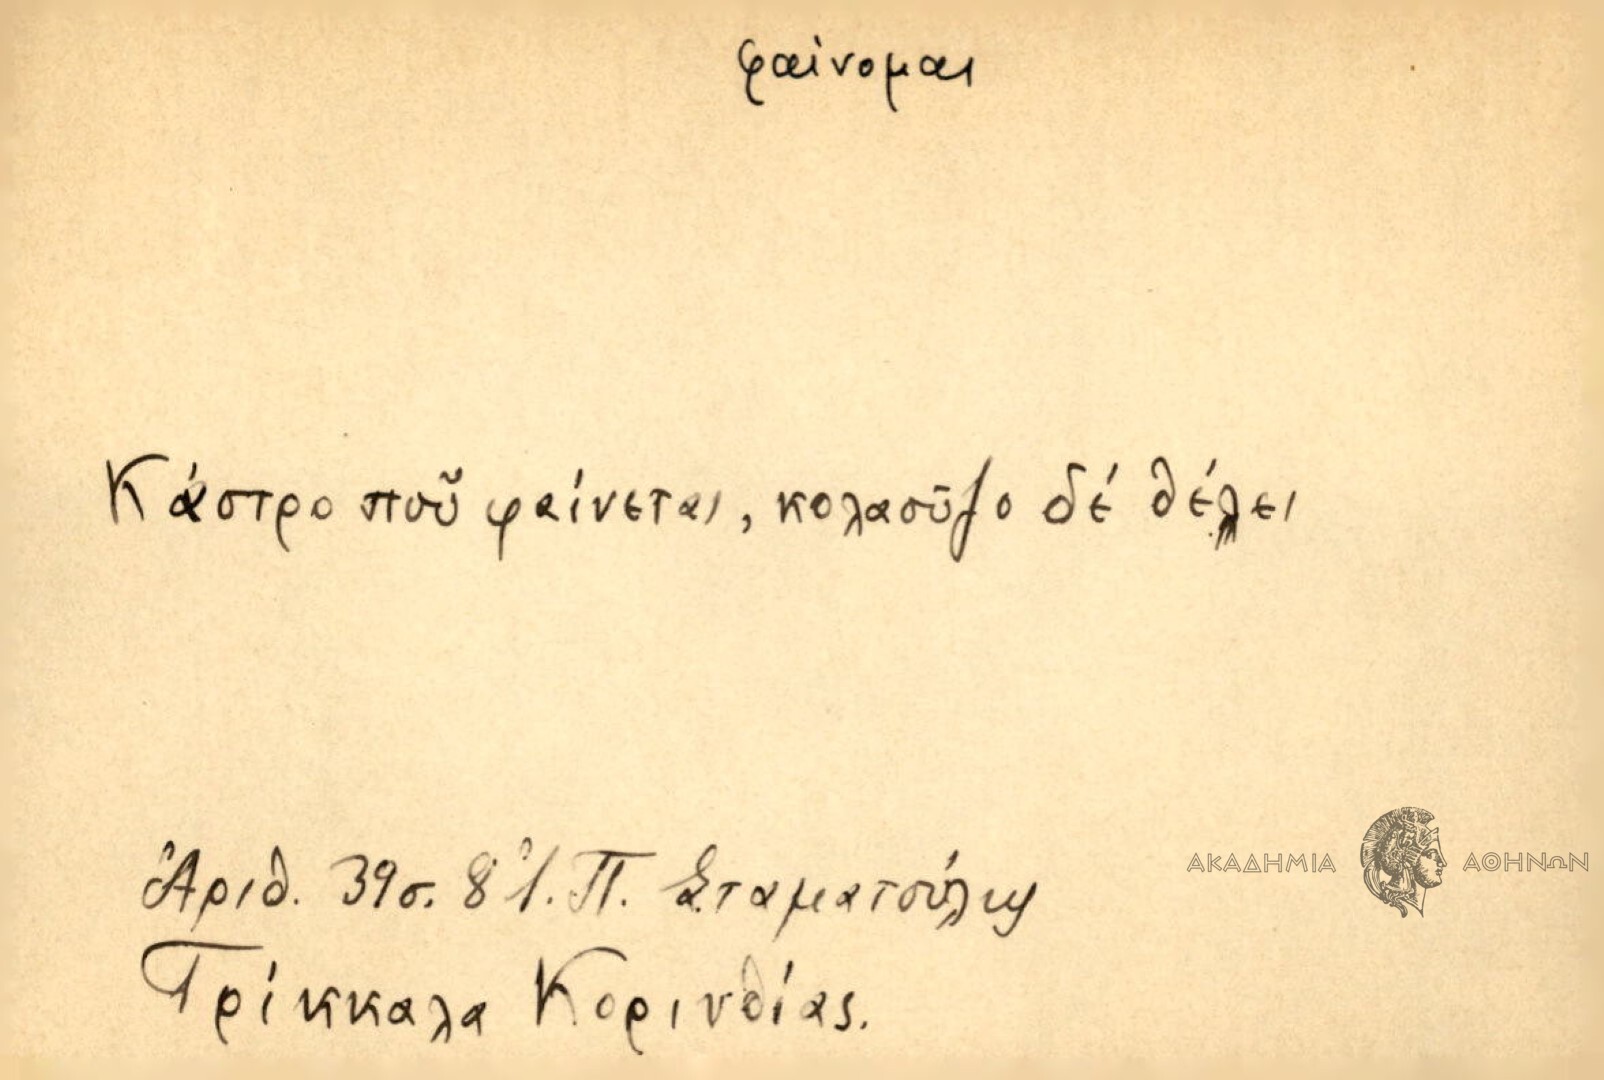 φαίνομαι
Κάστρο ποῦ φαίνεται, κολαοῦζο δέ θέλει
Ἀριθ. 39 σ. 8 Ἰ. Π. Σταματούλης
Τρίκκαλα Κορινθίας.
ΑΚΑΔΗΜΙΑ ΑΘΗΝΩΝ